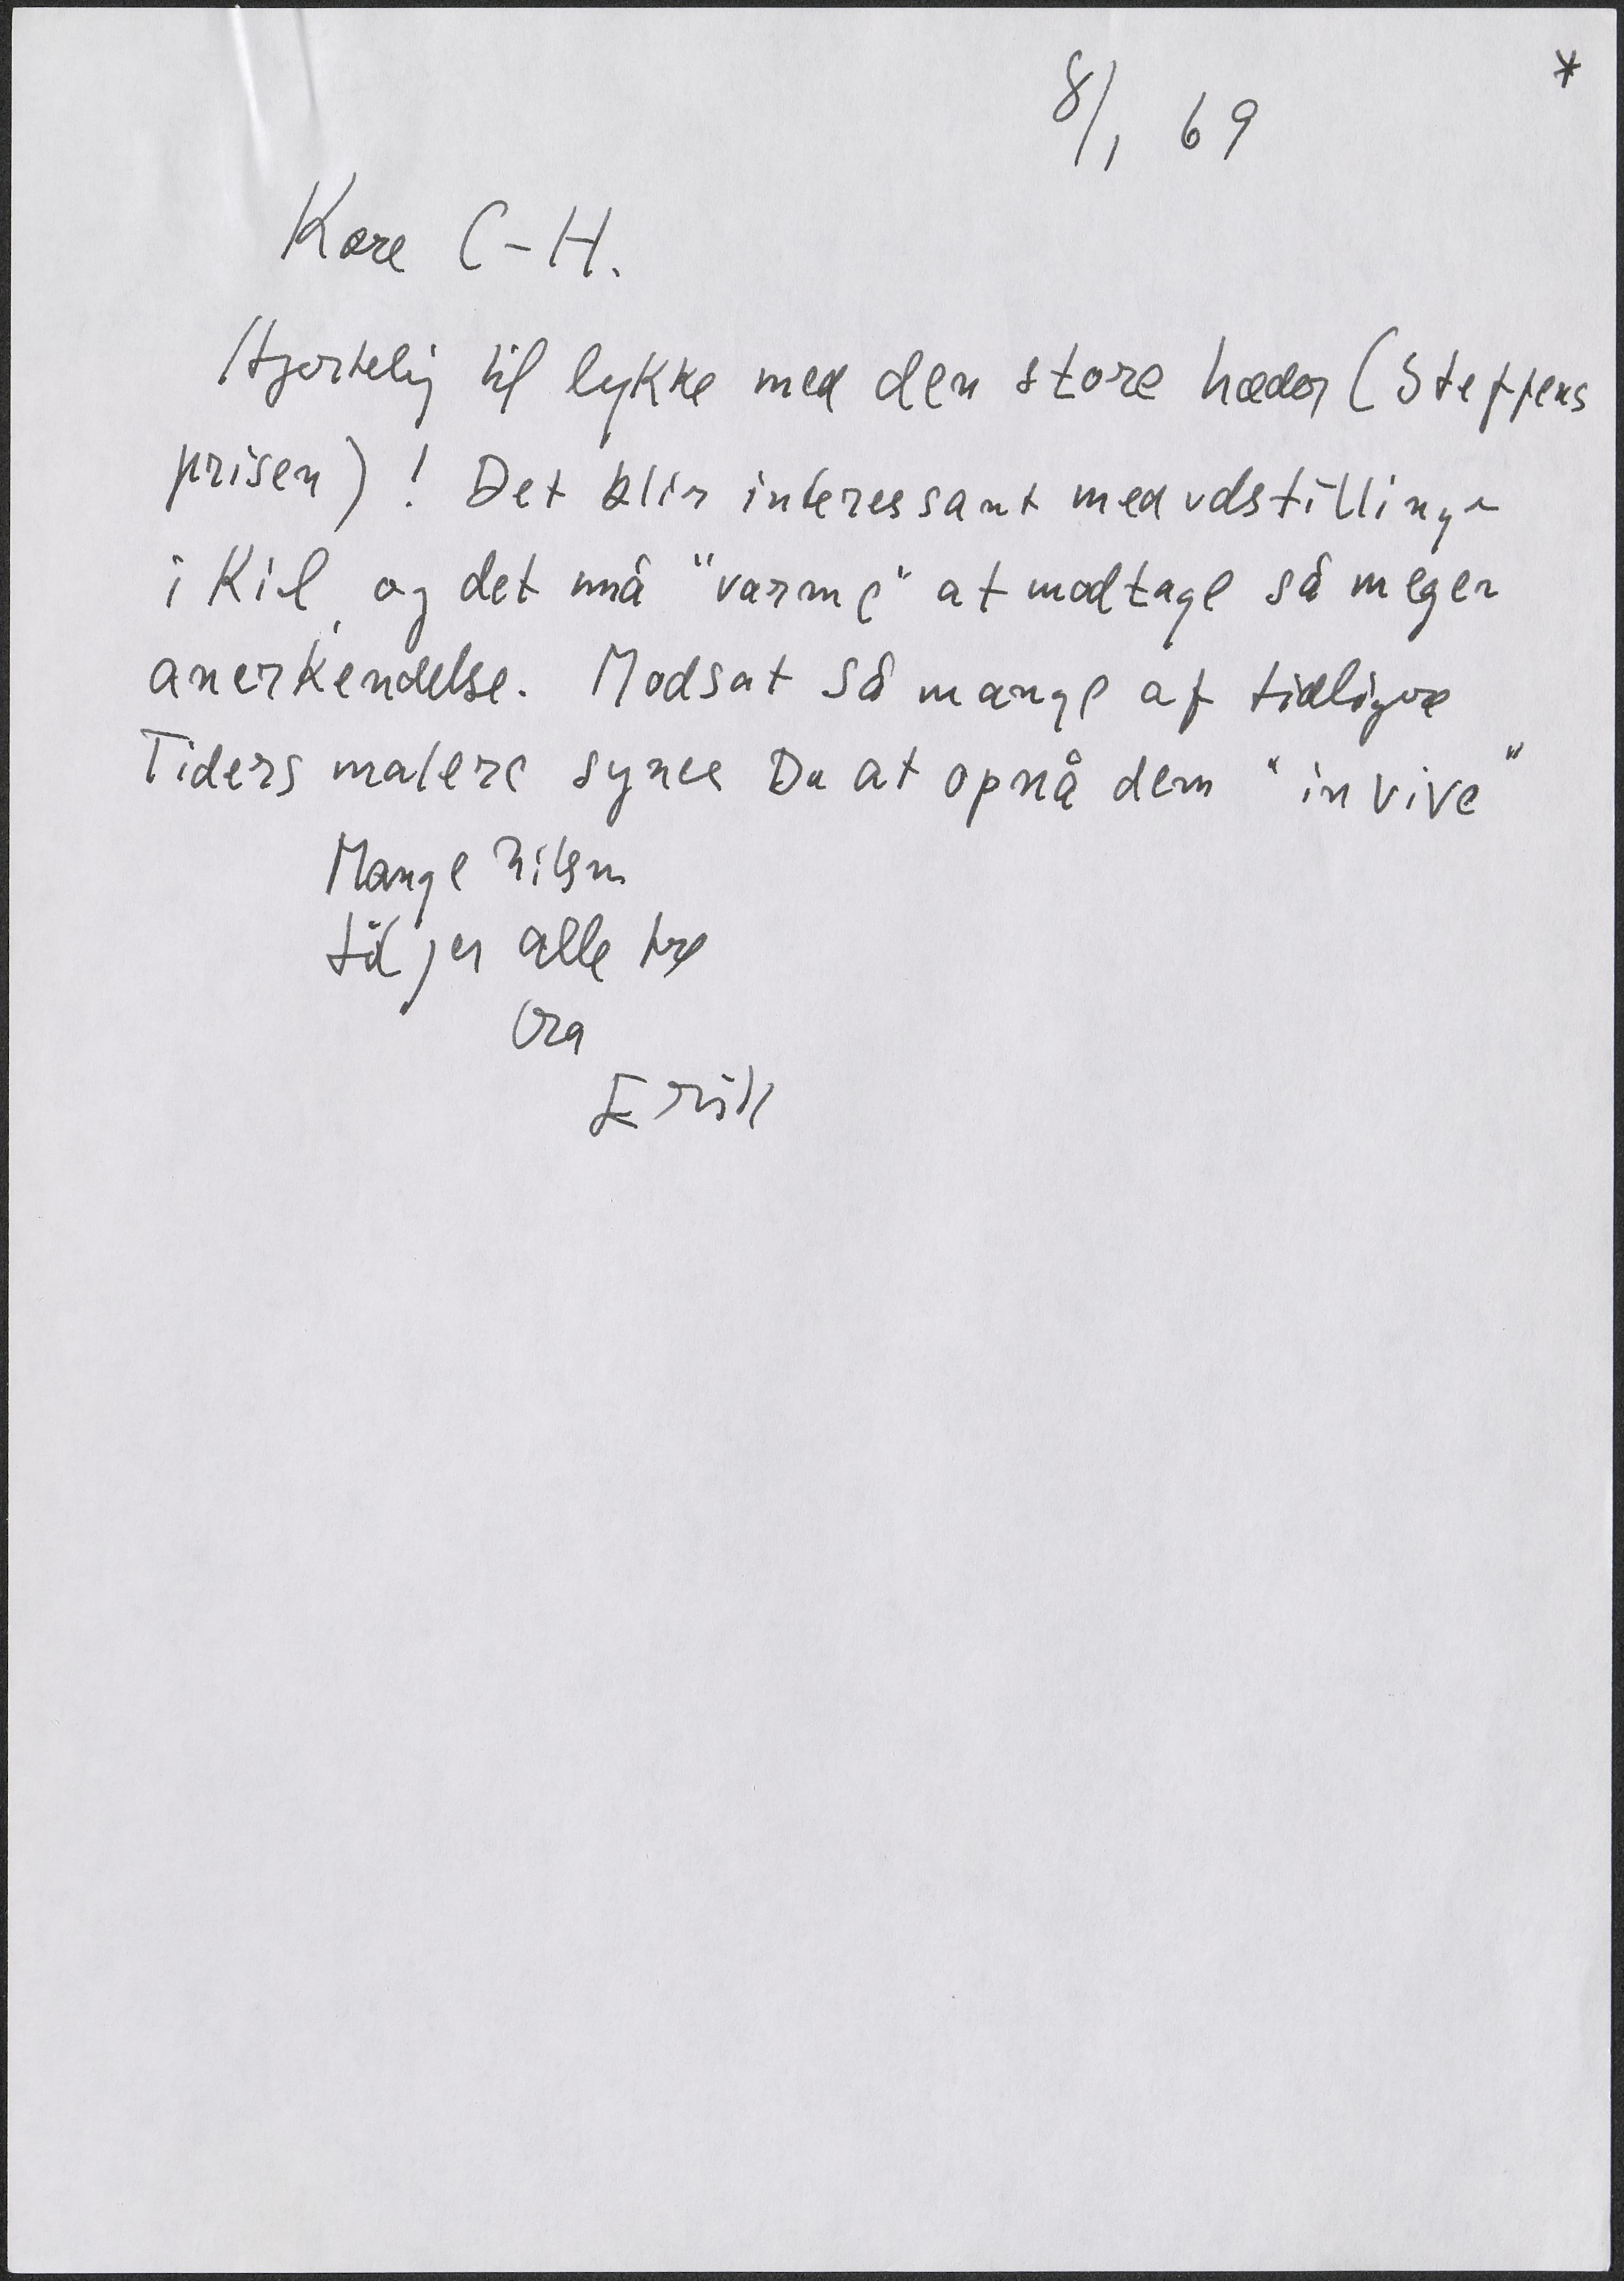 *
8/1 69
Kære C-H.
Hjertelig til lykke med den store hæder (Steffens
prisen)! Det blir interessant med udstillingen
i Kiel, og det må "varme" at modtage så megen
anerkendelse. Modsat så mange af tidligere
Tiders malere synes Du at opnå dem "in vive"
Mange hilsn
til jer alle tre
fra
Erik